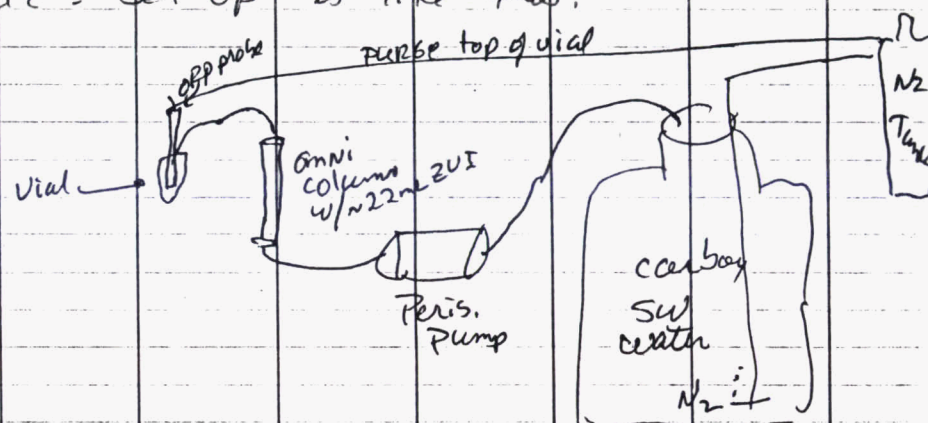 set up is like this.
ORP probe
purge top of vial
N2
Tank
Vial
omni
column
w/ ~22mL ZVI
Peris.
pump
carboy
SW
water
N2